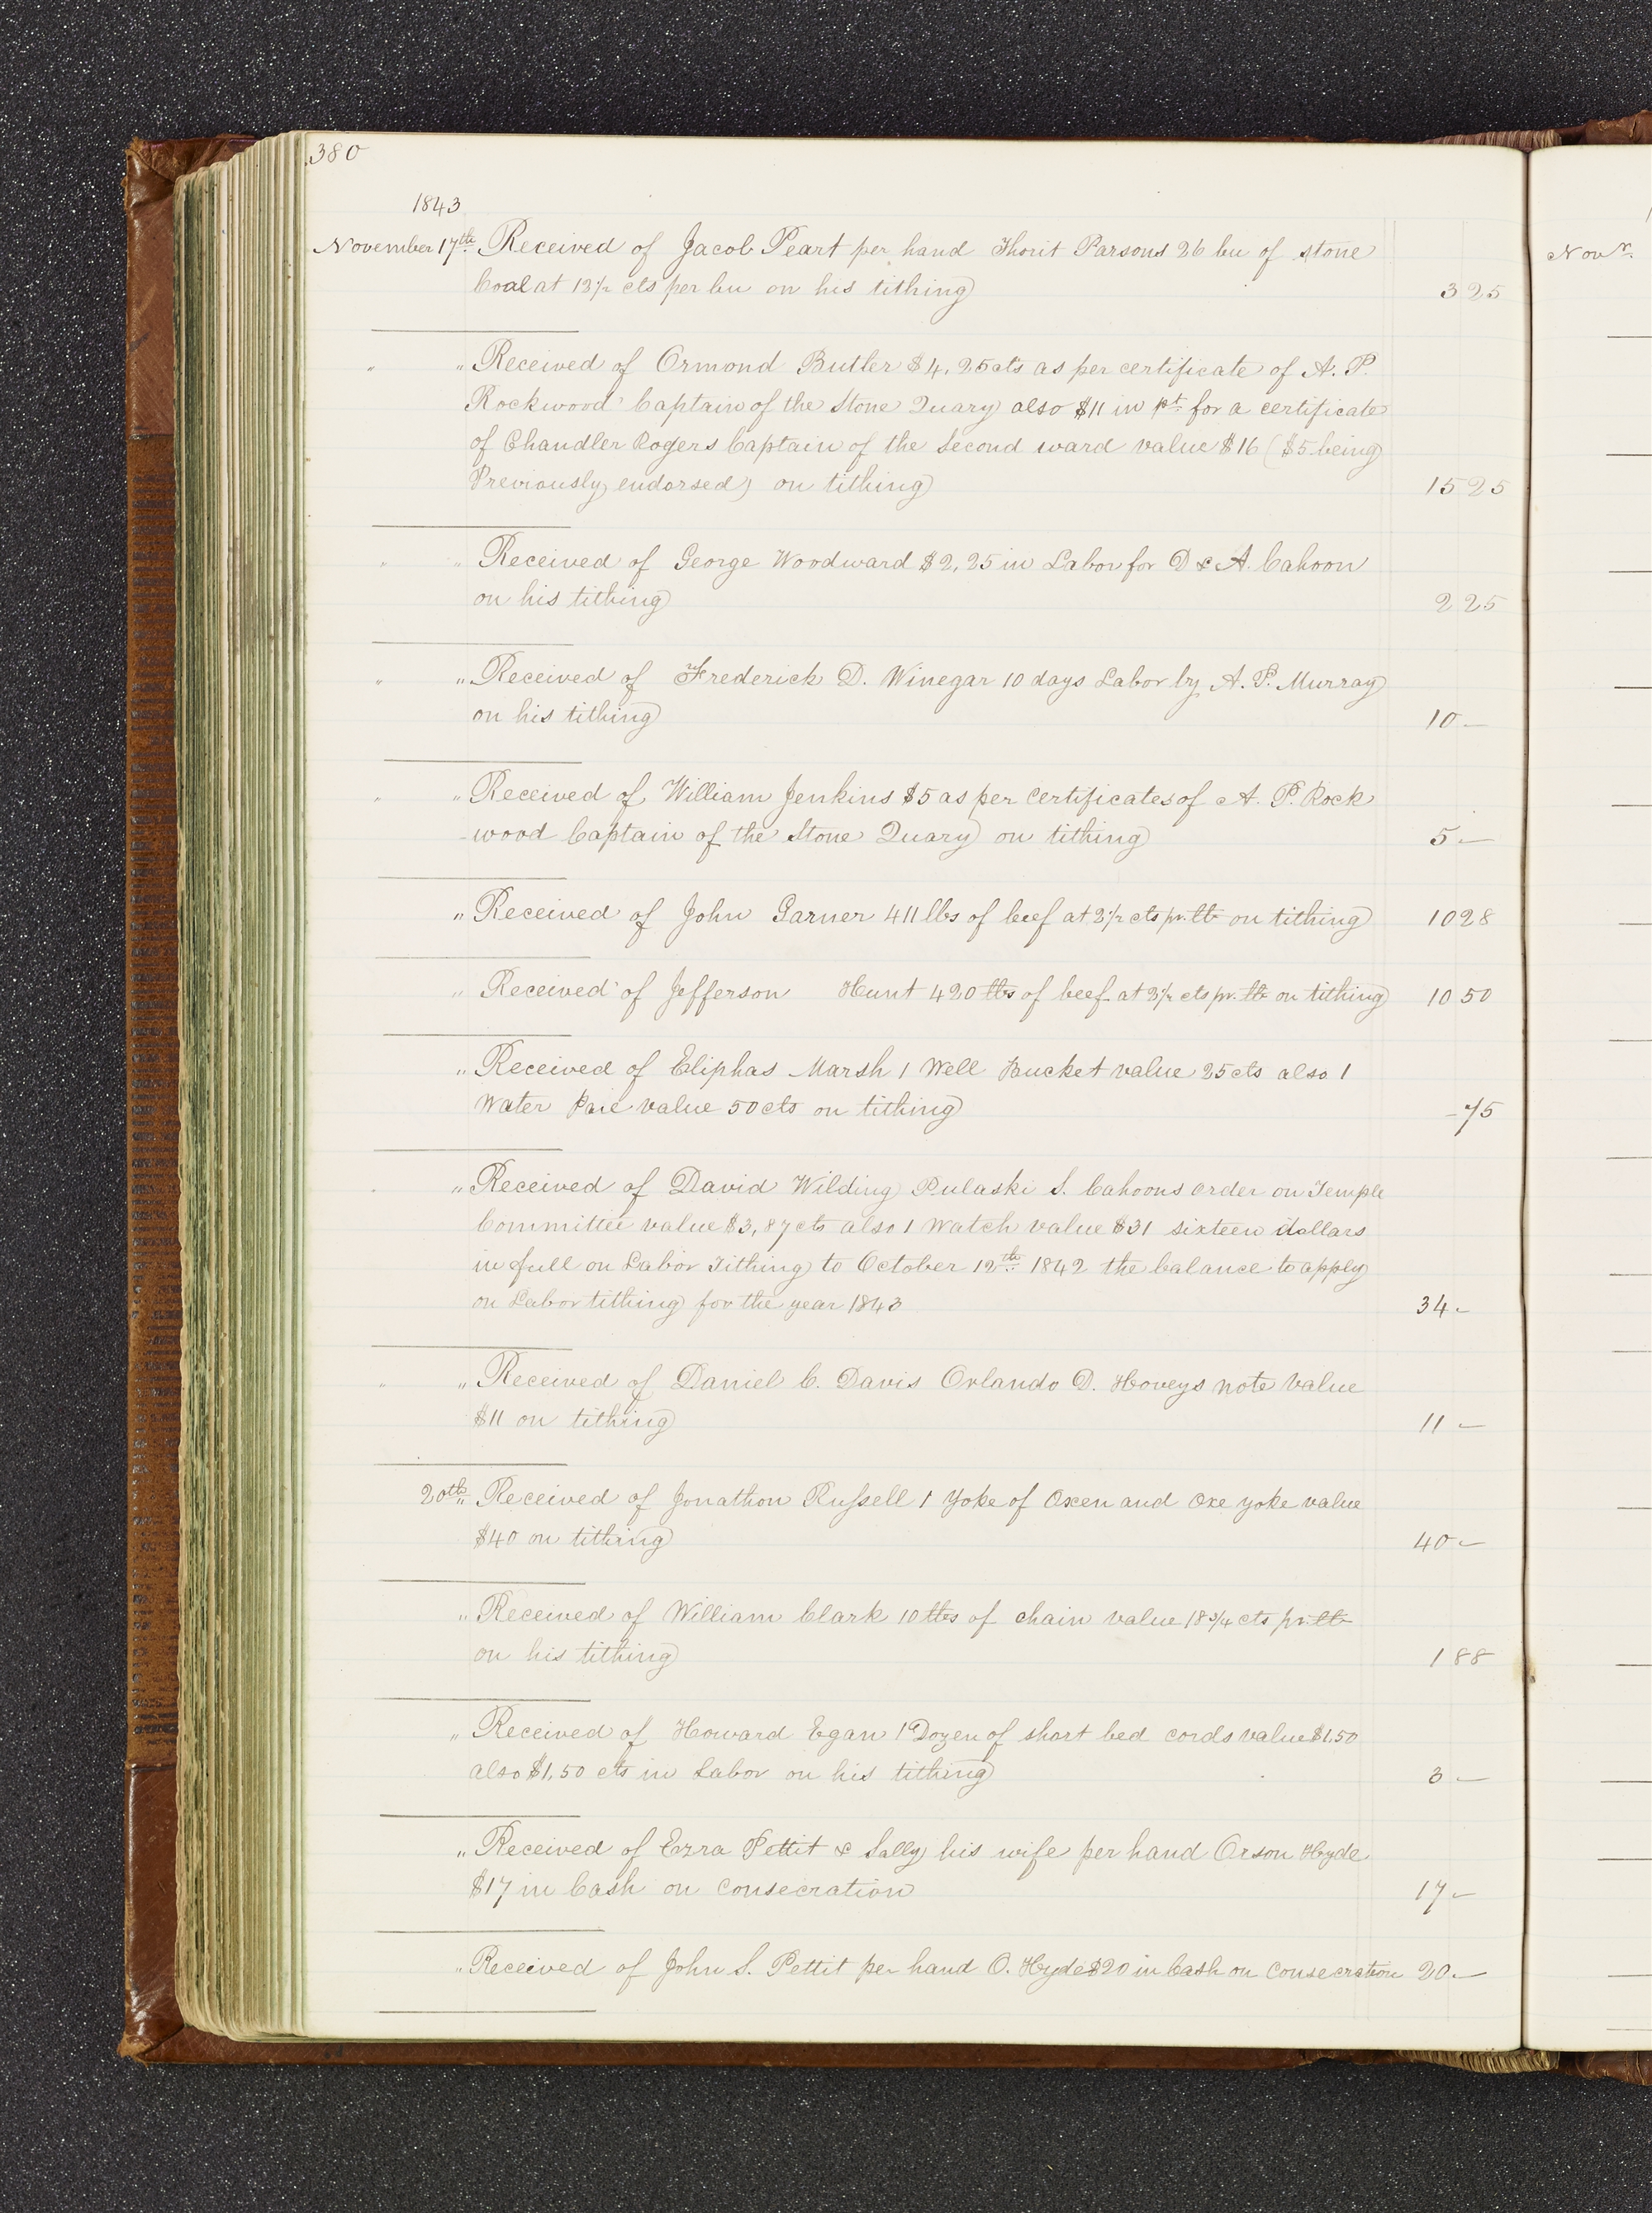 380
1843
November 17th Received of Jacob Peart per hand Thorit Parsons 26 bu of stone
Coal at 12½ cts per bu on his tithing 3 25
" " Received of Ormond Butler $4,25 cts as per certificate of A. P.
Rockwood Captain of the Stone Quary also $11 in pt. for a certificate
of Chandler Rogers Captain of the Second ward value $16 ($5 being
Previously endorsed) on tithing 15 25
" " Received of George Woodward $2,25 in Labor for D & A. Cahoon
on his tithing 2 25
" " Received of Frederick D. Winegar 10 days Labor by A. P. Murray
on his tithing 10 –
" " Received of William Jenkins $5 as per Certificates of A. P. Rock
-wood Captain of the Stone Quary on tithing 5 –
" Received of John Garner 411 lbs of beef at 2½ cts pr. lb on tithing 10 28
" Received of Jefferson Hunt 420 lbs of beef at 2½ cts pr. lb on tithing 10 50
" Received of Eliphas Marsh 1 Well Bucket value 25 cts also 1
Water Paie value 50 cts on tithing – 75
" " Received of David Wilding Pulaski S. Cahoons order on Temple
Committee value $3,87 cts also 1 Watch value $31 sixteen dollars
in full on Labor Tithing to October 12th 1842 the balance to apply
on Labor tithing for the year 1843 34 –
" " Received of Daniel C. Davis Orlando D. Hoveys note value
$11 on tithing 11 –
20th " Received of Jonathon Russell 1 Yoke of Oxen and Oxe yoke value
$40 on tithing 40 –
" Received of William Clark 10 lbs of chain value 18¾ cts pr. lb
on his tithing 1 88
" Received of Howard Egan 1 Dozen of short bed cords value $1.50
also $1,50 cts in Labor on his tithing 3 –
" Received of Ezra Pettit & Sally his wife per hand Orson Hyde
$17 in Cash on Consecration 17 –
" Received of John S. Pettit per hand O. Hyde $20 in Cash on Consecration 20 –
Novr.